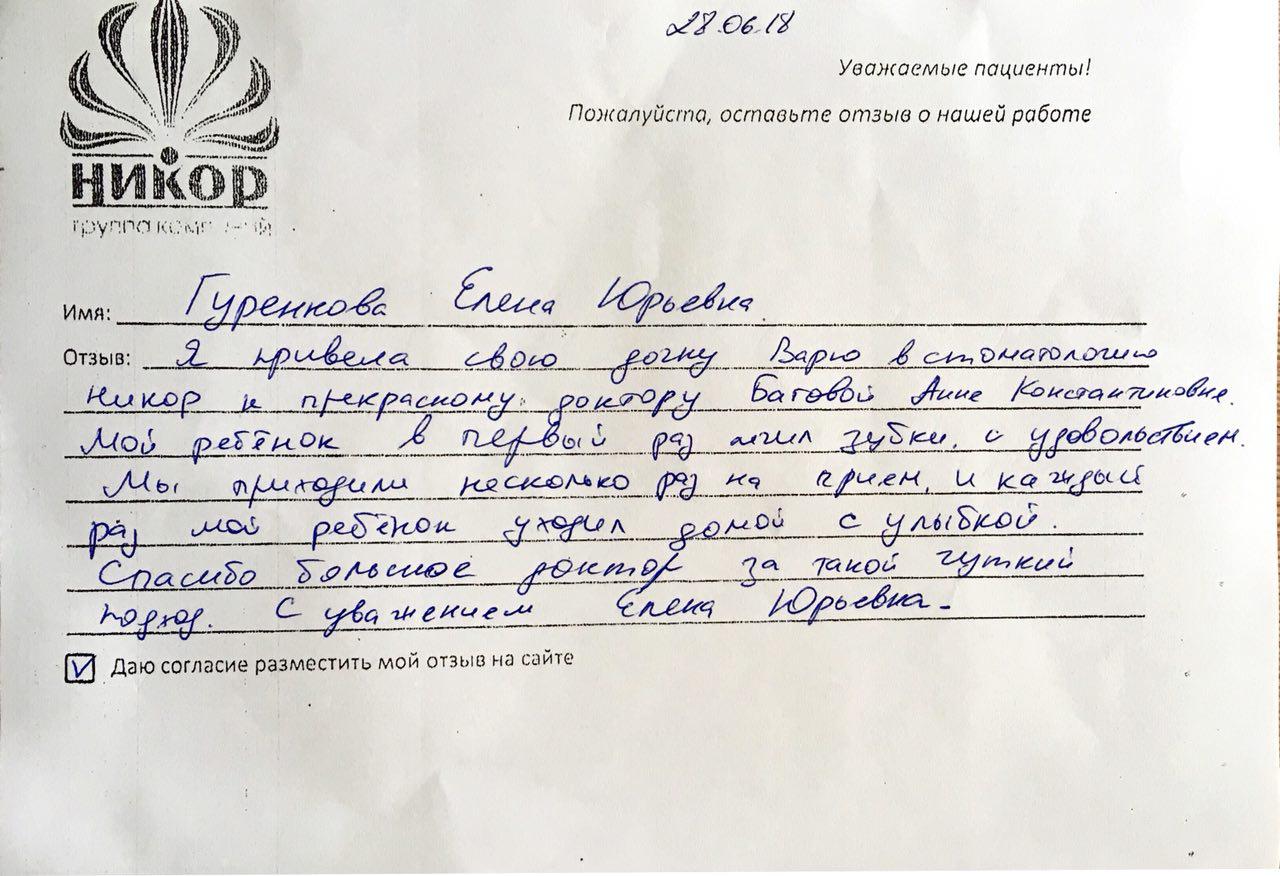 28.06.18
Уважаемые пациенты!
Пожалуйста, оставьте отзыв о нашей работе
НИКОР
группа компаний
Имя: Гуренкова Елена Юрьевна
Отзыв: Я привела свою дочку Варю в стоматологию
Никор к прекрасному доктору Баговой Анне Константиновне.
Мой ребёнок в первый раз лечил зубки с удовольствием.
Мы приходили несколько раз на прием, и каждый
раз мой ребёнок уходил домой с улыбкой.
Спасибо большое доктор за такой чуткий
подход. С уважением Елена Юрьевна.
Даю согласие разместить мой отзыв на сайте